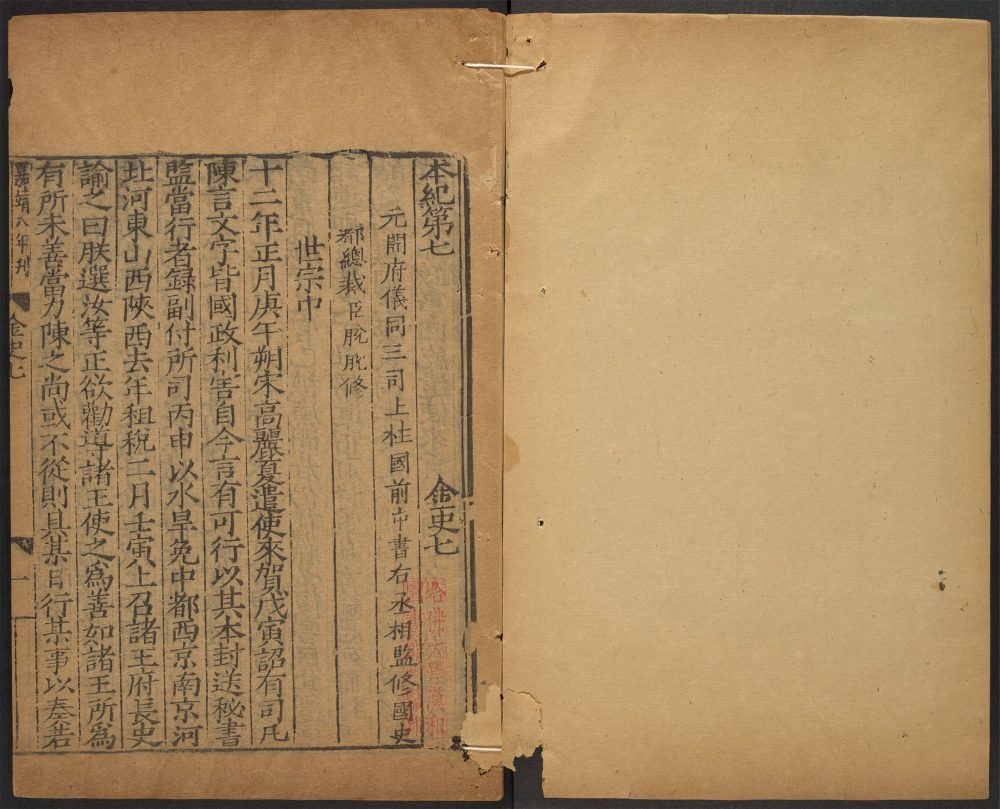 本紀第七 金史七
元開府儀同三司上柱國前中書右丞相監修國史
都總裁臣脫脫修
世宗中
十二年正月庚午朔宋高麗夏遣使來賀戊寅詔有司凡
陳言文字皆國政利害自今言有可行以其本封送秘書
監當行者録副付所司丙申以水旱免中都西京南京河
北河東山西陝西去年租稅二月壬寅上召諸王府長史
諭之曰朕選汝等正欲勸導諸王使之為善如諸王所為
有所未善當力陳之尚或不從則具某日行某事以奏若
嘉靖八年刊 金史七 一
哈佛大學漢和